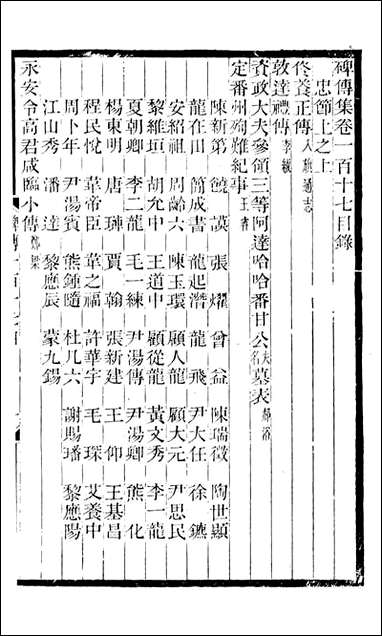 碑傳集卷一百十七目錄
忠節上之上
佟養正傳 八旗通志
敦達禮傳 李紱
資政大夫參領三等阿達哈哈番甘公 墓表
定番州殉難紀事
陳新第 饒謨 張燿 曾益 陳瑞徵 陶世顯
龍在田 簡成書 龍起潛 龍飛 尹大任 徐鑣
安紹祖 周齡六 陳玉環 顧人龍 顧大元 尹思民
黎維垣 胡允中 王道中 顧從龍 黃文秀 李一龍
夏朝卿 李二龍 毛一練 尹湯傳 尹湯卿 熊化
楊東明 唐璉 賈翰 張新建 王仰 王基昌
程民悅 葦帝臣 葦之福 許華宇 毛琛 艾養中
周卜年 尹湯賓 熊鍾隨 杜几六 謝賜璠 黎應陽
江山秀 潘達 黎應辰 蒙九錫
永安令高君咸臨小傳